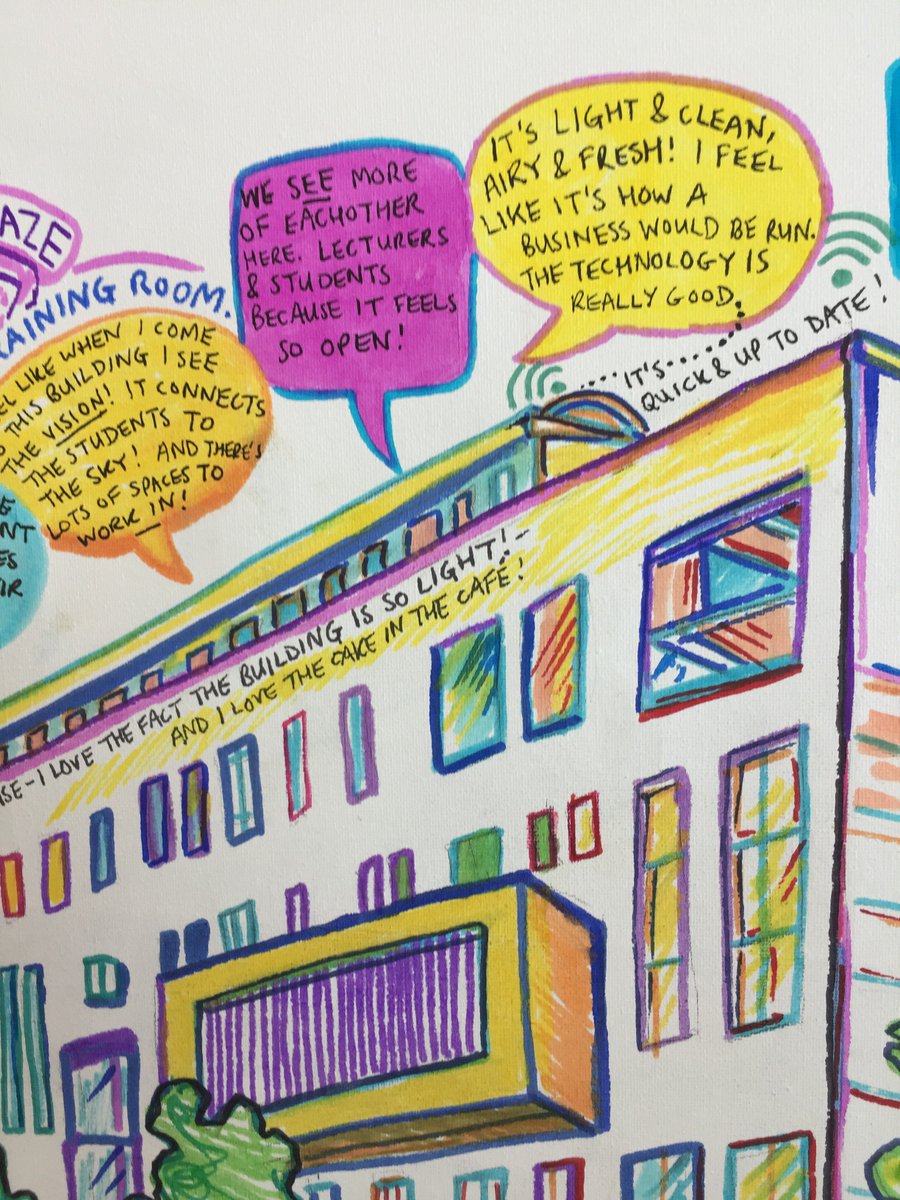 AZE
RAINING ROOM.
EL LIKE WHEN I COME
THIS BUILDING I SEE
THE VISION! IT CONNECTS
THE STUDENTS TO
THE SKY! AND THERE'S
LOTS OF SPACES TO
WORK IN!
WE SEE MORE
OF EACHOTHER
HERE. LECTURERS
& STUDENTS
BECAUSE IT FEELS
SO OPEN!
IT'S LIGHT & CLEAN,
AIRY & FRESH! I FEEL
LIKE IT'S HOW A
BUSINESS WOULD BE RUN.
THE TECHNOLOGY IS
REALLY GOOD.
IT'S
QUICK & UP TO DATE!
- I LOVE THE FACT THE BUILDING IS SO LIGHT! -
AND I LOVE THE CAKE IN THE CAFÉ!